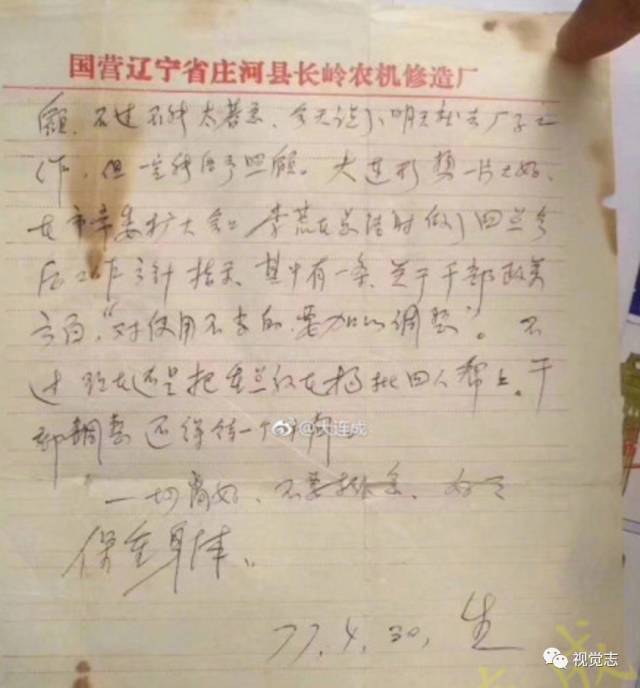 国营辽宁省庄河县长岭农机修造厂
顾，不过不能太着急，今天说了，明天就去厂子工
作，但一定能给予照顾。大连形势一片大好，
在市常委扩大会上 李荒在总结时做了四点今
后工作方针指示，其中有一条，关于干部政策
方面，“对使用不当的，要加以调整”。不
过现在还是把重点放在揭批四人帮上。干
部调整还得待一个时期。
一切都好、不要挂念，好好
保重身体。
77.4.30， 生
@大连成
视觉志